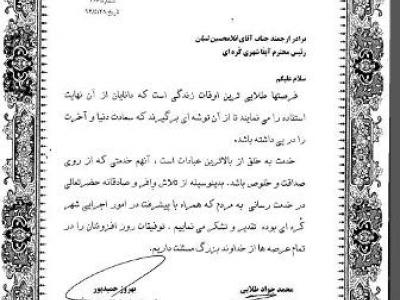 برادر ارجمند جناب آقای غلامحسین
رئیس محترم آبفا شهری گره ای
سلام علیکم
فرصتها طلایی ترین اوقات زندگی است که دانایان از آن نهایت
استفاده را می نمایند تا از آن توشه ای برگیرند که سعادت دنیا و آخرت
را در پی داشته باشد.
خدمت به خلق از بالاترین عبادات است ، آنهم خدمتی که از روی
صداقت و خلوص باشد. بدینوسیله از تلاش وافر و صادقانه حضرتعالی
در خدمت رسانی به مردم که همراه با پیشرفت در امور اجرایی شهر
گره ای بوده تقدیر و تشکر می نماییم . توفیقات روز افزونتان را در
تمام عرصه ها از خداوند بزرگ مسئلت داریم.
محمد جواد طلایی
بهروز حمیدپور